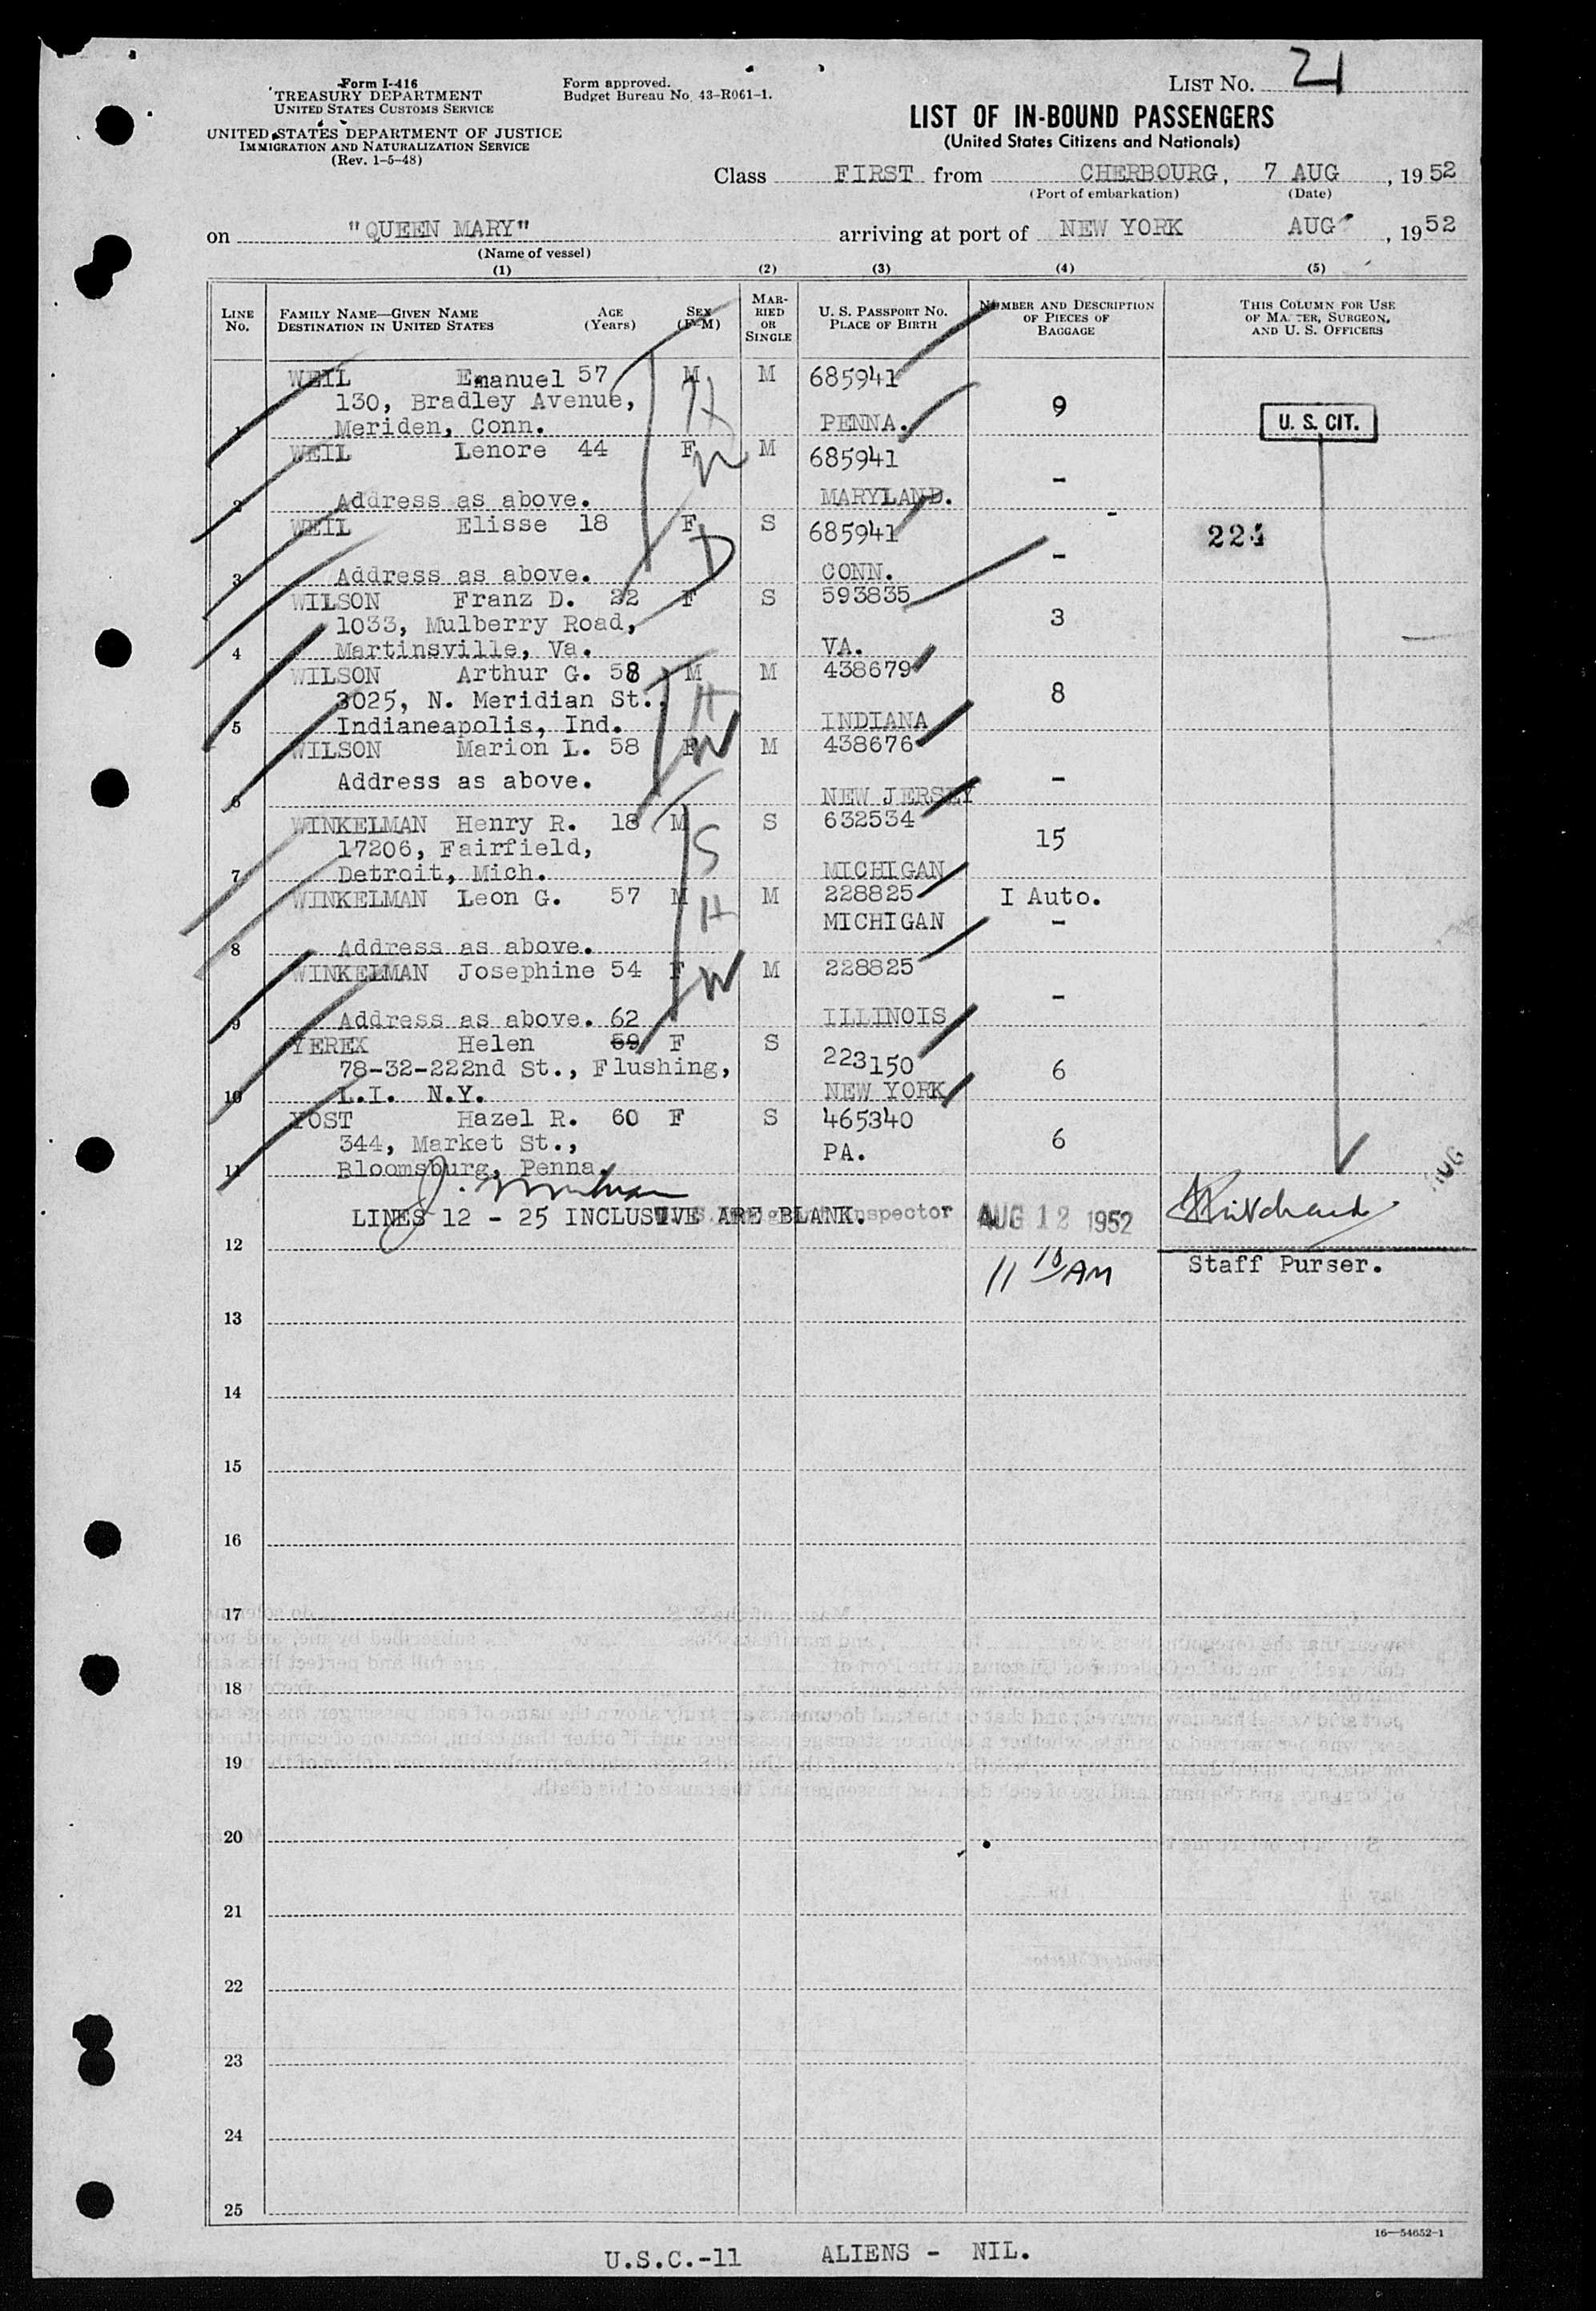 Form I-416
TREASURY DEPARTMENT
UNITED STATES CUSTOMS SERVICE
UNITED STATES DEPARTMENT OF JUSTICE
IMMIGRATION AND NATURALIZATION SERVICE
(Rev. 1-5-48)
Form approved.
Budget Bureau No. 43-R061-1.
LIST NO. 21
LIST OF IN-BOUND PASSENGERS
(United States Citizens and Nationals)
Class FIRST from CHERBOURG, 7 AUG, 1952
(Port of embarkation) (Date)
on "QUEEN MARY" arriving at port of NEW YORK AUG, 1952
(Name of vessel)
(1) (2) (3) (4) (5)
LINE NO. FAMILY NAME—GIVEN NAME DESTINATION IN UNITED STATES AGE (Years) SEX (F-M) MARRIED OR SINGLE U. S. PASSPORT NO. PLACE OF BIRTH NUMBER AND DESCRIPTION OF PIECES OF BAGGAGE THIS COLUMN FOR USE OF MASTER, SURGEON, AND U. S. OFFICERS
WEIL Emanuel 57 M M 685941
130, Bradley Avenue, 9
1 Meriden, Conn. PENNA. U. S. CIT.
WEIL Lenore 44 F M 685941
W
2 Address as above. MARYLAND. -
WEIL Elisse 18 F S 685941 224
D
3 Address as above. CONN. -
WILSON Franz D. 22 F S 593835
1033, Mulberry Road, 3
4 Martinsville, Va. VA.
WILSON Arthur G. 58 M M 438679
3025, N. Meridian St., H 8
5 Indianeapolis, Ind. INDIANA
WILSON Marion L. 58 F W M 438676
6 Address as above. NEW JERSEY -
WINKELMAN Henry R. 18 M S 632534
17206, Fairfield, S 15
7 Detroit, Mich. MICHIGAN
WINKELMAN Leon G. 57 M M 228825 I Auto.
H MICHIGAN -
8 Address as above.
WINKELMAN Josephine 54 F W M 228825
-
9 Address as above. 62 ILLINOIS
YEREX Helen 59 F S 223150
78-32-222nd St., Flushing, 6
10 L.I. N.Y. NEW YORK
YOST Hazel R. 60 F S 465340
344, Market St., PA. 6
11 Bloomsburg, Penna.
LINES 12 - 25 INCLUSIVE ARE BLANK. Inspector AUG 12 1952
12
11 10 AM Staff Purser.
13
14
15
16
17
18
19
20
21
22
23
24
25
16—54652-1
U.S.C.-11 ALIENS - NIL.